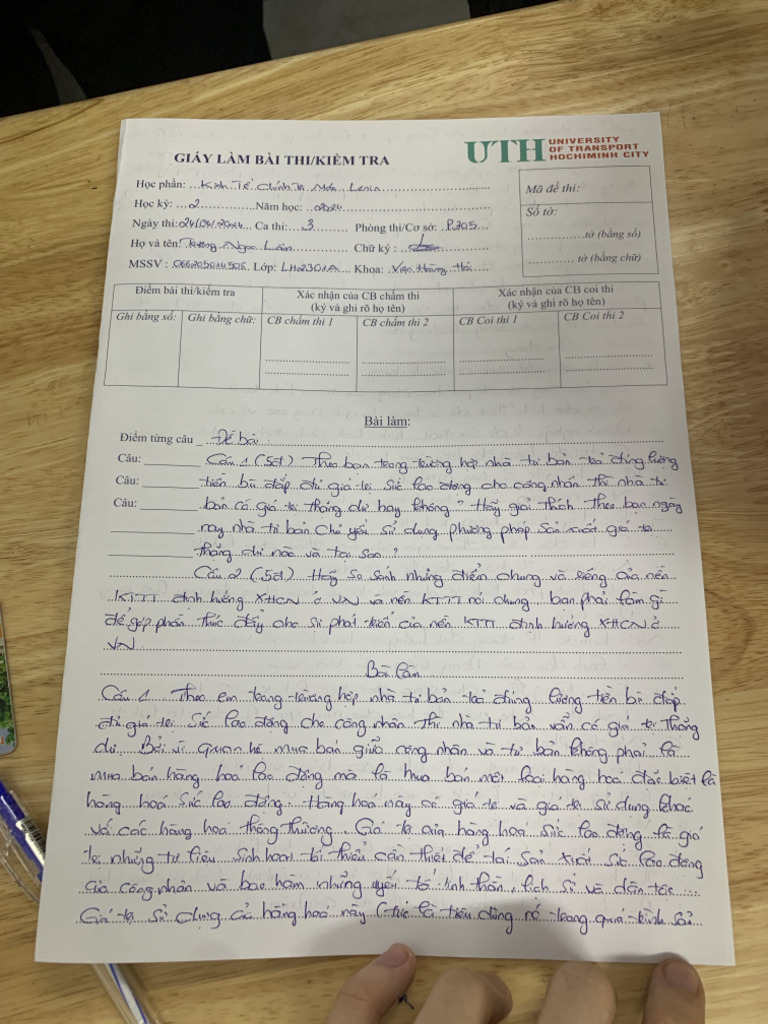 GIẤY LÀM BÀI THI/KIỂM TRA
UTH UNIVERSITY OF TRANSPORT HOCHIMINH CITY
Học phần: Kinh Tế Chính Trị Mác Lenin
Học kỳ: 2 Năm học: 2024
Ngày thi: 24/04/2024 Ca thi: 3 Phòng thi/Cơ sở: P.705
Họ và tên: Trương Ngọc Lân Chữ ký :
MSSV : Lớp: LH2301A Khoa: Viện Hàng Hải
Mã đề thi:
Số tờ:
tờ (bằng số)
tờ (bằng chữ)
Điểm bài thi/kiểm tra
Xác nhận của CB chấm thi
(ký và ghi rõ họ tên)
Xác nhận của CB coi thi
(ký và ghi rõ họ tên)
Ghi bằng số: Ghi bằng chữ: CB chấm thi 1 CB chấm thi 2 CB Coi thi 1 CB Coi thi 2
Bài làm:
Điểm từng câu Đề bài :
Câu: Câu 1 (5đ) Theo bạn trong trường hợp nhà tư bản trả đúng lượng
Câu: tiền bù đắp đủ giá trị sức lao động cho công nhân thì nhà tư
Câu: bản có giá trị thặng dư hay không ? Hãy giải thích. Theo bạn ngày
nay nhà tư bản chủ yếu sử dụng phương pháp sản xuất giá trị
thặng dư nào và tại sao ?
Câu 2 (5đ) Hãy so sánh những điểm chung và riêng của nền
KTTT định hướng XHCN ở VN và nền KTTT nói chung, bạn phải làm gì
để góp phần thúc đẩy cho sự phát triển của nền KTTT định hướng XHCN ở
VN
Bài làm
Câu 1 Theo em trong trường hợp nhà tư bản trả đúng lượng tiền bù đắp
đủ giá trị sức lao động cho công nhân thì nhà tư bản vẫn có giá trị thặng
dư. Bởi vì quan hệ mua bán giữa công nhân và tư bản không phải là
mua bán hàng hoá lao động mà là mua bán một loại hàng hoá đặc biệt là
hàng hoá sức lao động. Hàng hoá này có giá trị và giá trị sử dụng khác
với các hàng hoá thông thường. Giá trị của hàng hoá sức lao động là giá
trị những tư liệu sinh hoạt tối thiểu cần thiết để tái sản xuất sức lao động
của công nhân và bao hàm những yếu tố tinh thần, lịch sử và dân tộc
Giá trị sử dụng của hàng hoá này (tức là tiêu dùng nó trong quá trình sản